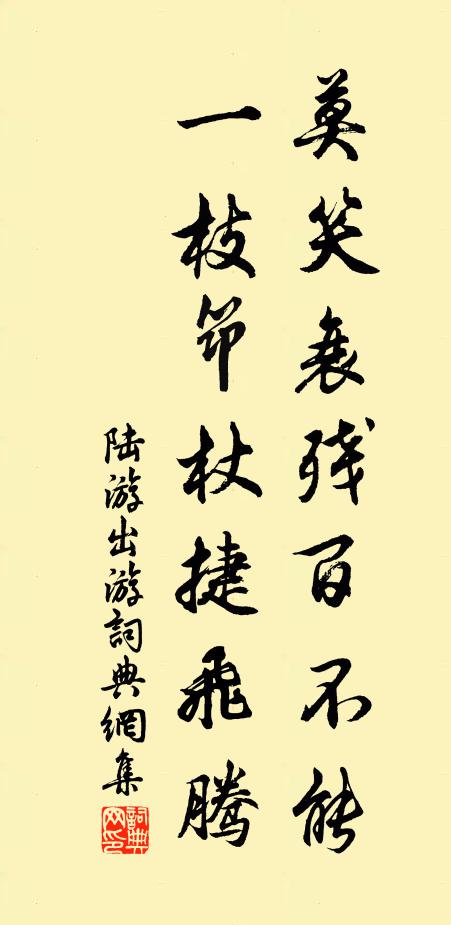 莫笑衰残百不能
一枝笻杖捷飛騰
陆游出游詞典網集
詞典網印